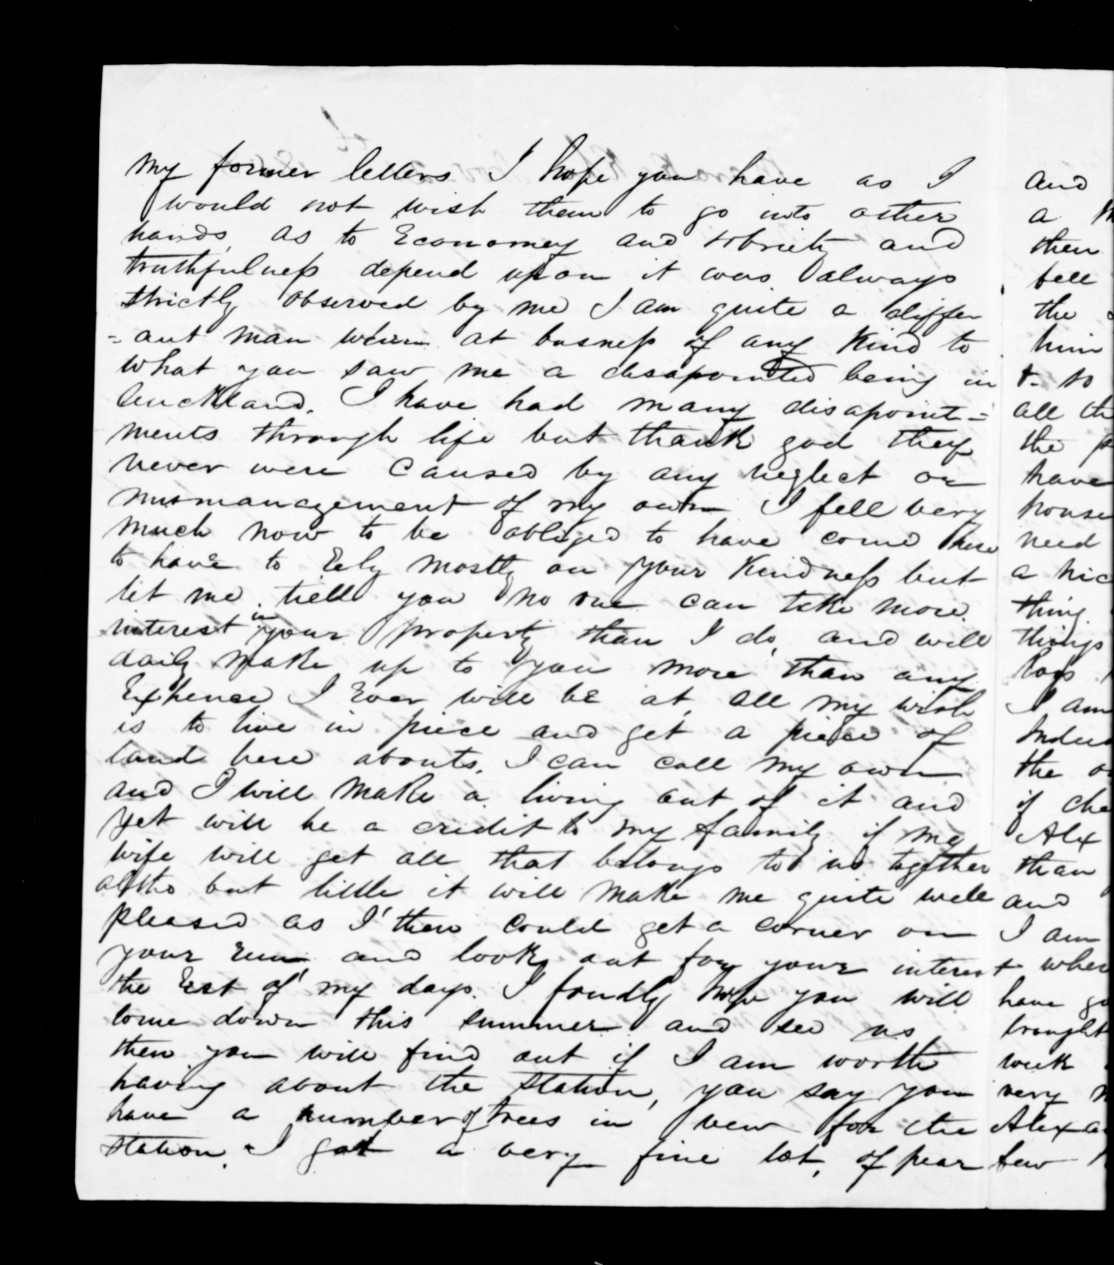 my former letters I hope you have as I
would not wish them to go into other
hands, as to Economey and sobriety and
truthfulness depend upon it was always
strictly observed by me I am quite a differ
=ant man when at busness of any Kind to
what you saw me a disapointed being in
Auckland. I have had many disapoint=
ments through life but thank god they
never were caused by any neglect or
missmanagement of my own I fell very
much now to be obliged to have come here
to have to Rely mostly on your Kindness but
let me tell you no one can take more
interest in your property than I do, and will
daily make up to you more than any
Expence I Ever will be at, all my wish
is to live in piece and get a piece of
land here abouts. I can call my own
and I will make a living out of it and
yet will be a credit to my family if my
wife will get all that belongs to us together
altho but little it will make me quite well
pleased as I then could get a corner on
your Run and look out for your interest
the Rest of my days. I fondly hope you will
come down this summer and see us
then you will find out if I am worth
having about the station, you say you
have a number of trees in view for the
station. I got a very fine lot, of pear
and
a
then
fell
the
him
& so
all th
the
have
house
need
a nic
thing
things
logs
I am
Indus
the o
if che
Alex
than
and
I am
when
have go
brought
week
very
Alex a
few